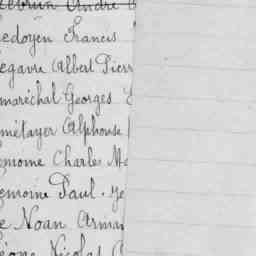 Lebrun André
edoyen Francis
egavre Albert Pierr
maréchal Georges
métayer Alphonse
emoine Charles Ma
emoine Paul. Ge
e Noan Arman
éone Nicolas